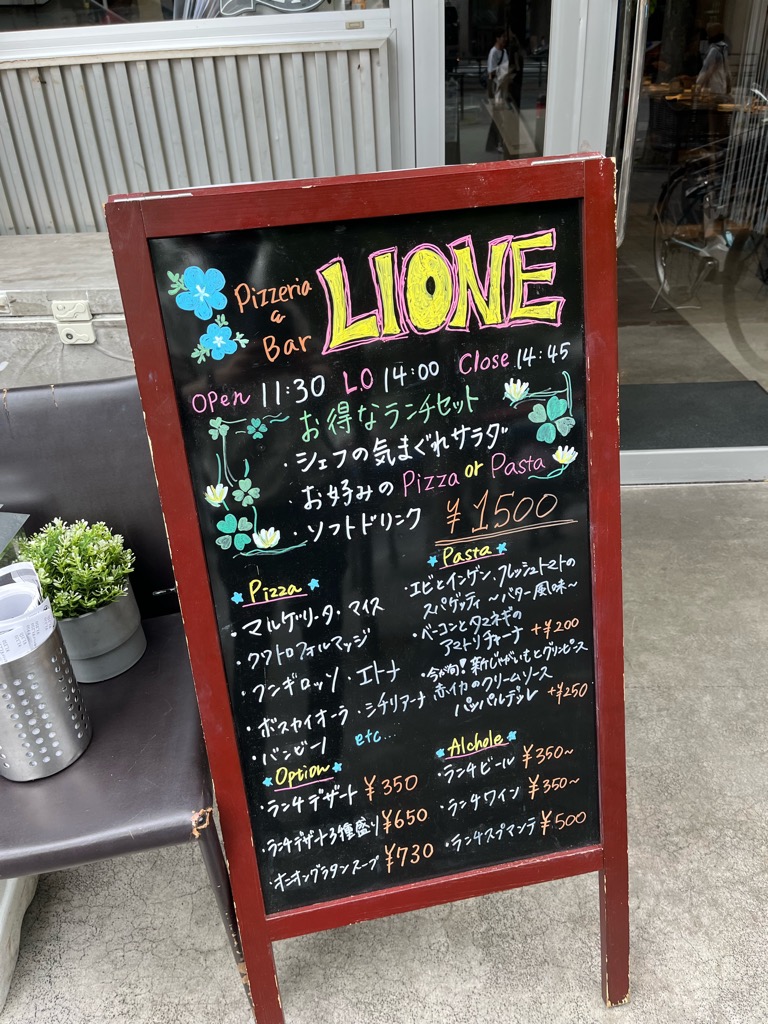 Pizzeria
&
Bar
LIONE
OPen 11:30 L.O 14:00 Close 14:45
お得なランチセット
・シェフの気まぐれサラダ
・お好みの Pizza or Pasta
・ソフトドリンク ¥1500
Pizza
・マルゲリータ・マイス
・クワトロフォルマッジ
・フンギロッソ・エトナ
・ボスカイオーラ・シチリアーナ
・バンビーノ etc...
Pasta
・エビとインゲン、フレッシュトマトの
スパゲッティ 〜バター風味〜
・ベーコンとタマネギの
アマトリチャーナ +¥200
・今が旬!新じゃがいもとグリンピース
赤イカのクリームソース
パッパルデッレ +¥250
Option
・ランチデザート ¥350
・ランチデザート3種盛り ¥650
・オニオングラタンスープ ¥730
Alchole
・ランチビール ¥350~
・ランチワイン ¥350~
・ランチスプマンテ ¥500